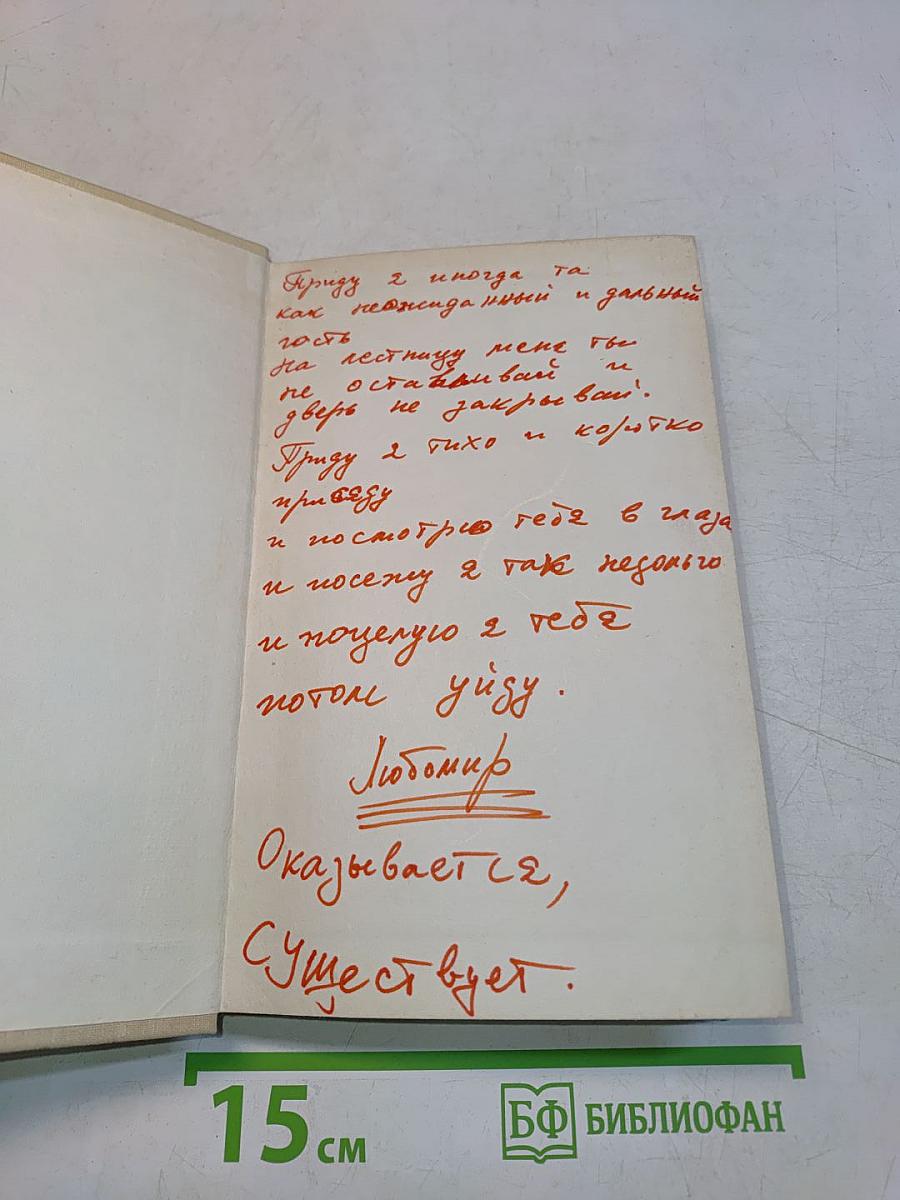 Приду я иногда та
как неожиданный и дальный
гость
на лестницу меня ты
не оставливай и
дверь не закрывай.
Приду я тихо и коротко
присяду
и посмотрю тебя в глаза
и посежу я так недолго
и поцелую я тебя
потом уйду.
Любомир
Оказывается,
Существует.
15 см
БФ БИБЛИОФАН